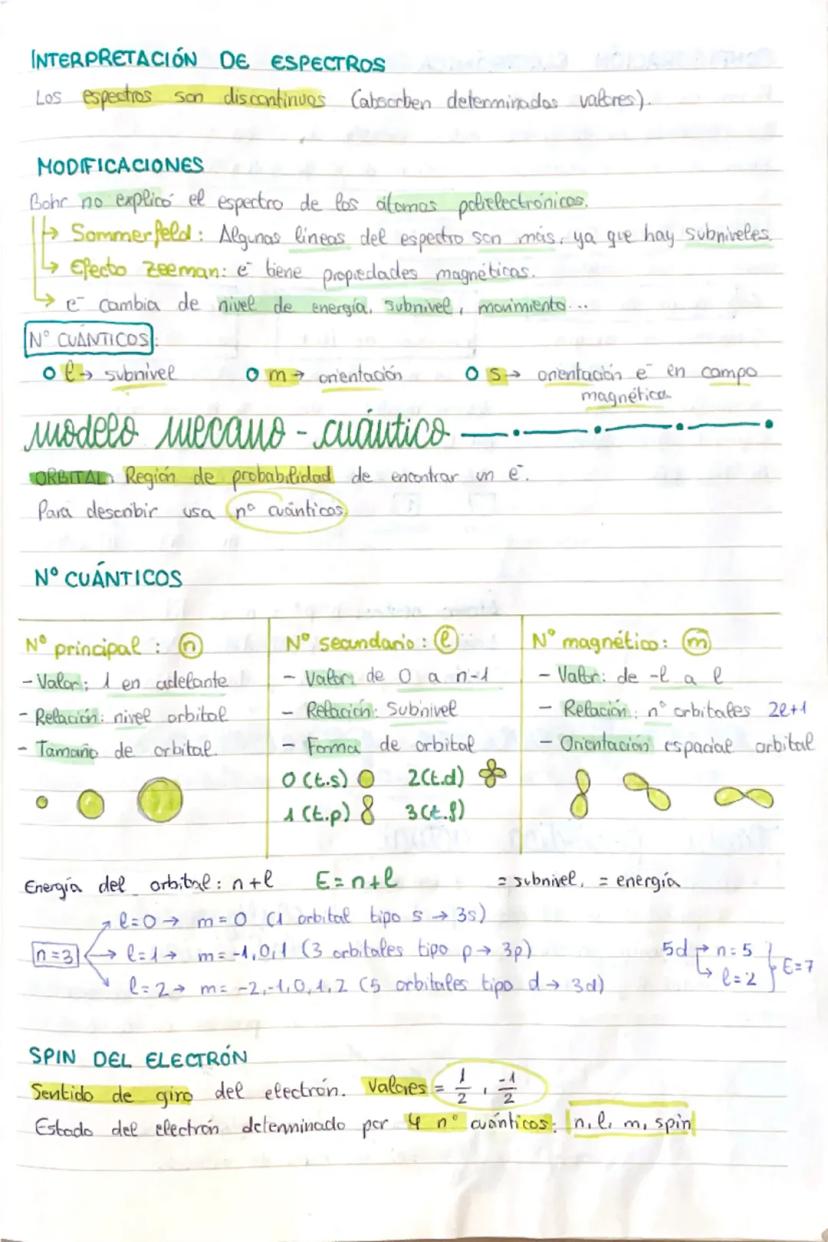 INTERPRETACIÓN DE ESPECTROS
Los espectros son discontinuos (absorben determinados valores).
MODIFICACIONES
Bohr no explicó el espectro de los átomos polielectrónicos.
↳ Sommerfeld: Algunas líneas del espectro son más, ya que hay subniveles.
↳ Efecto Zeeman: e⁻ tiene propiedades magnéticas.
↳ e⁻ cambia de nivel de energía, subnivel, movimiento...
Nº CUÁNTICOS:
O l → subnivel O m → orientación O s → orientación e⁻ en campo
magnético
modelo mecano-cuántico
ORBITAL Región de probabilidad de encontrar un e⁻.
Para describir usa nº cuánticos
Nº CUÁNTICOS
Nº principal: n
- Valor: 1 en adelante
- Relación: nivel orbital
- Tamaño de orbital
Nº secundario: l
- Valor: de 0 a n-1
- Relación: Subnivel
- Forma de orbital
0 (t.s) 2(t.d)
1 (t.p) 3(t.f)
Nº magnético: m
- Valor: de -l a l
- Relación: nº orbitales 2l+1
- Orientación espacial orbital
Energía del orbital: n+l E=n+l = subnivel, = energía
l=0 → m=0 (1 orbital tipo s → 3s)
n=3 → l=1 → m=-1,0,1 (3 orbitales tipo p → 3p) 5d → n=5
l=2 → m=-2,-1,0,1,2 (5 orbitales tipo d → 3d) ↳ l=2 } E=7
SPIN DEL ELECTRÓN
Sentido de giro del electrón. Valores = 1/2, -1/2
Estado del electrón determinado por 4 nº cuánticos: n, l, m, spin